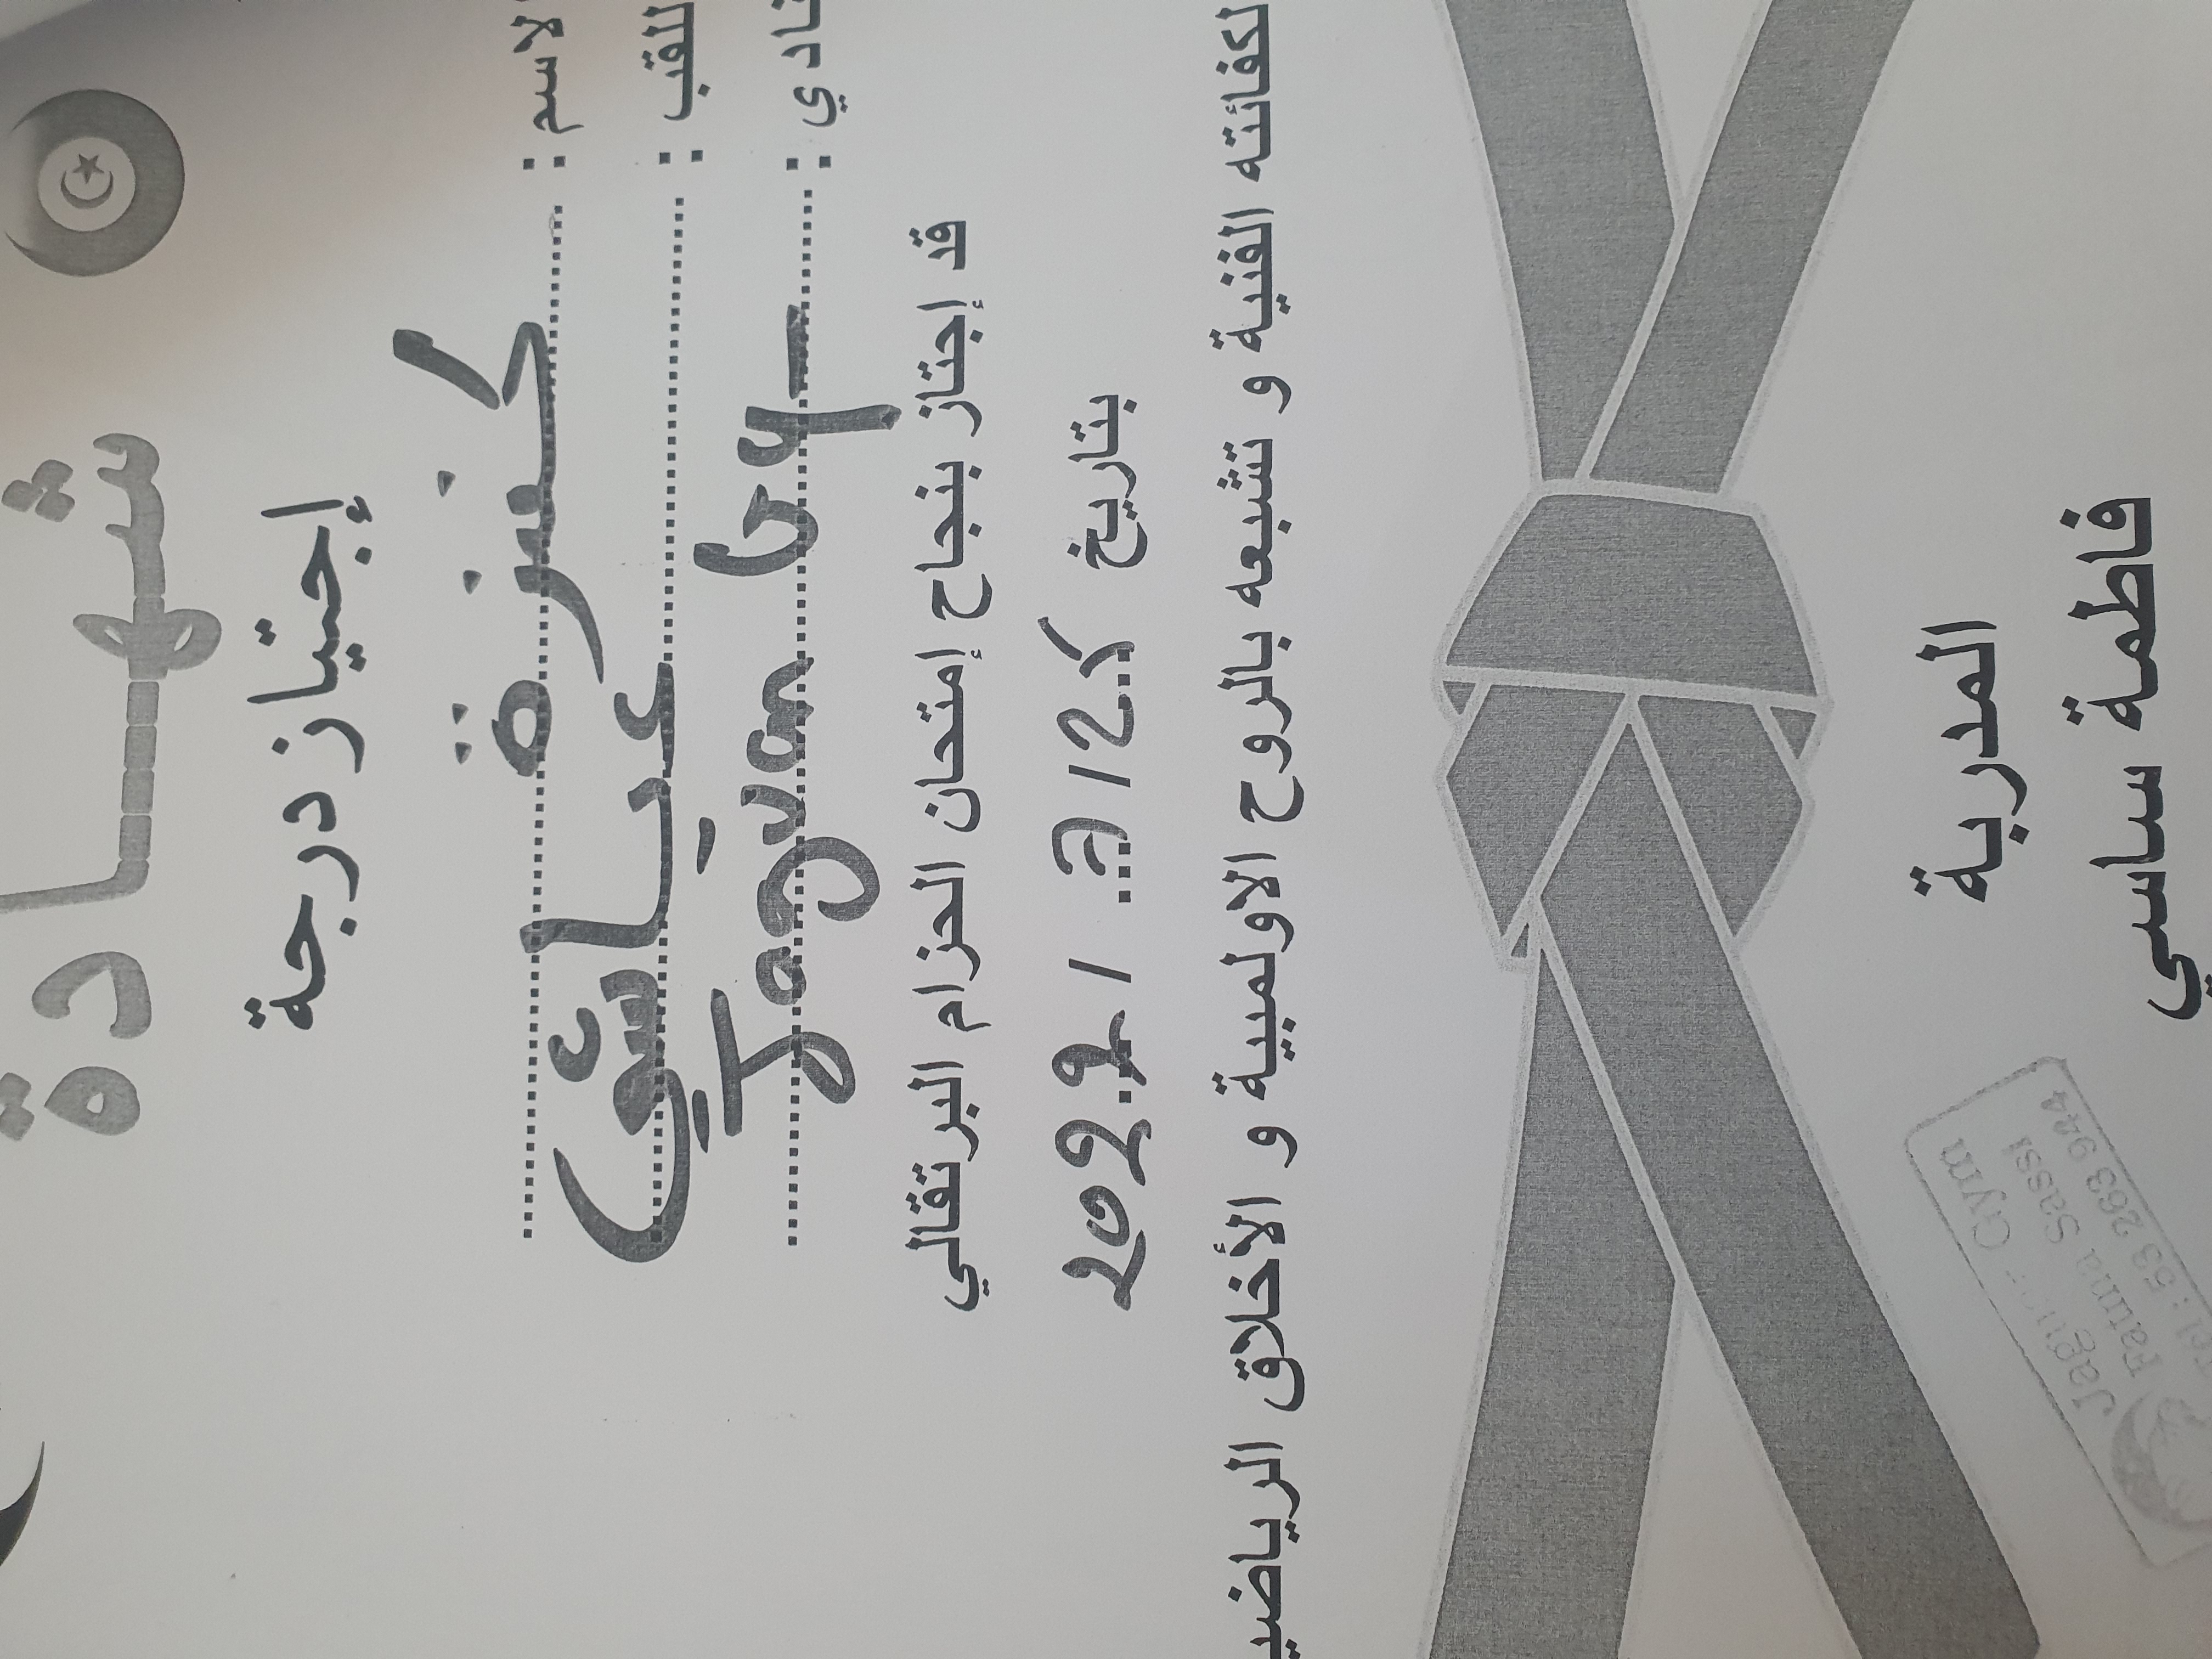 شهادة
إجتياز درجة
الاسم : كنزة
اللقب : عياشي
النادي : Jaguar Gym
قد إجتاز بنجاح إمتحان الحزام البرتقالي
بتاريخ
لكفائته الفنية و تشبعه بالروح الاولمبية و الأخلاق الرياضي
المدربة
فاطمة ساسي
Jaguar Gym
Fatma Sassi
Tel : 53 263 944